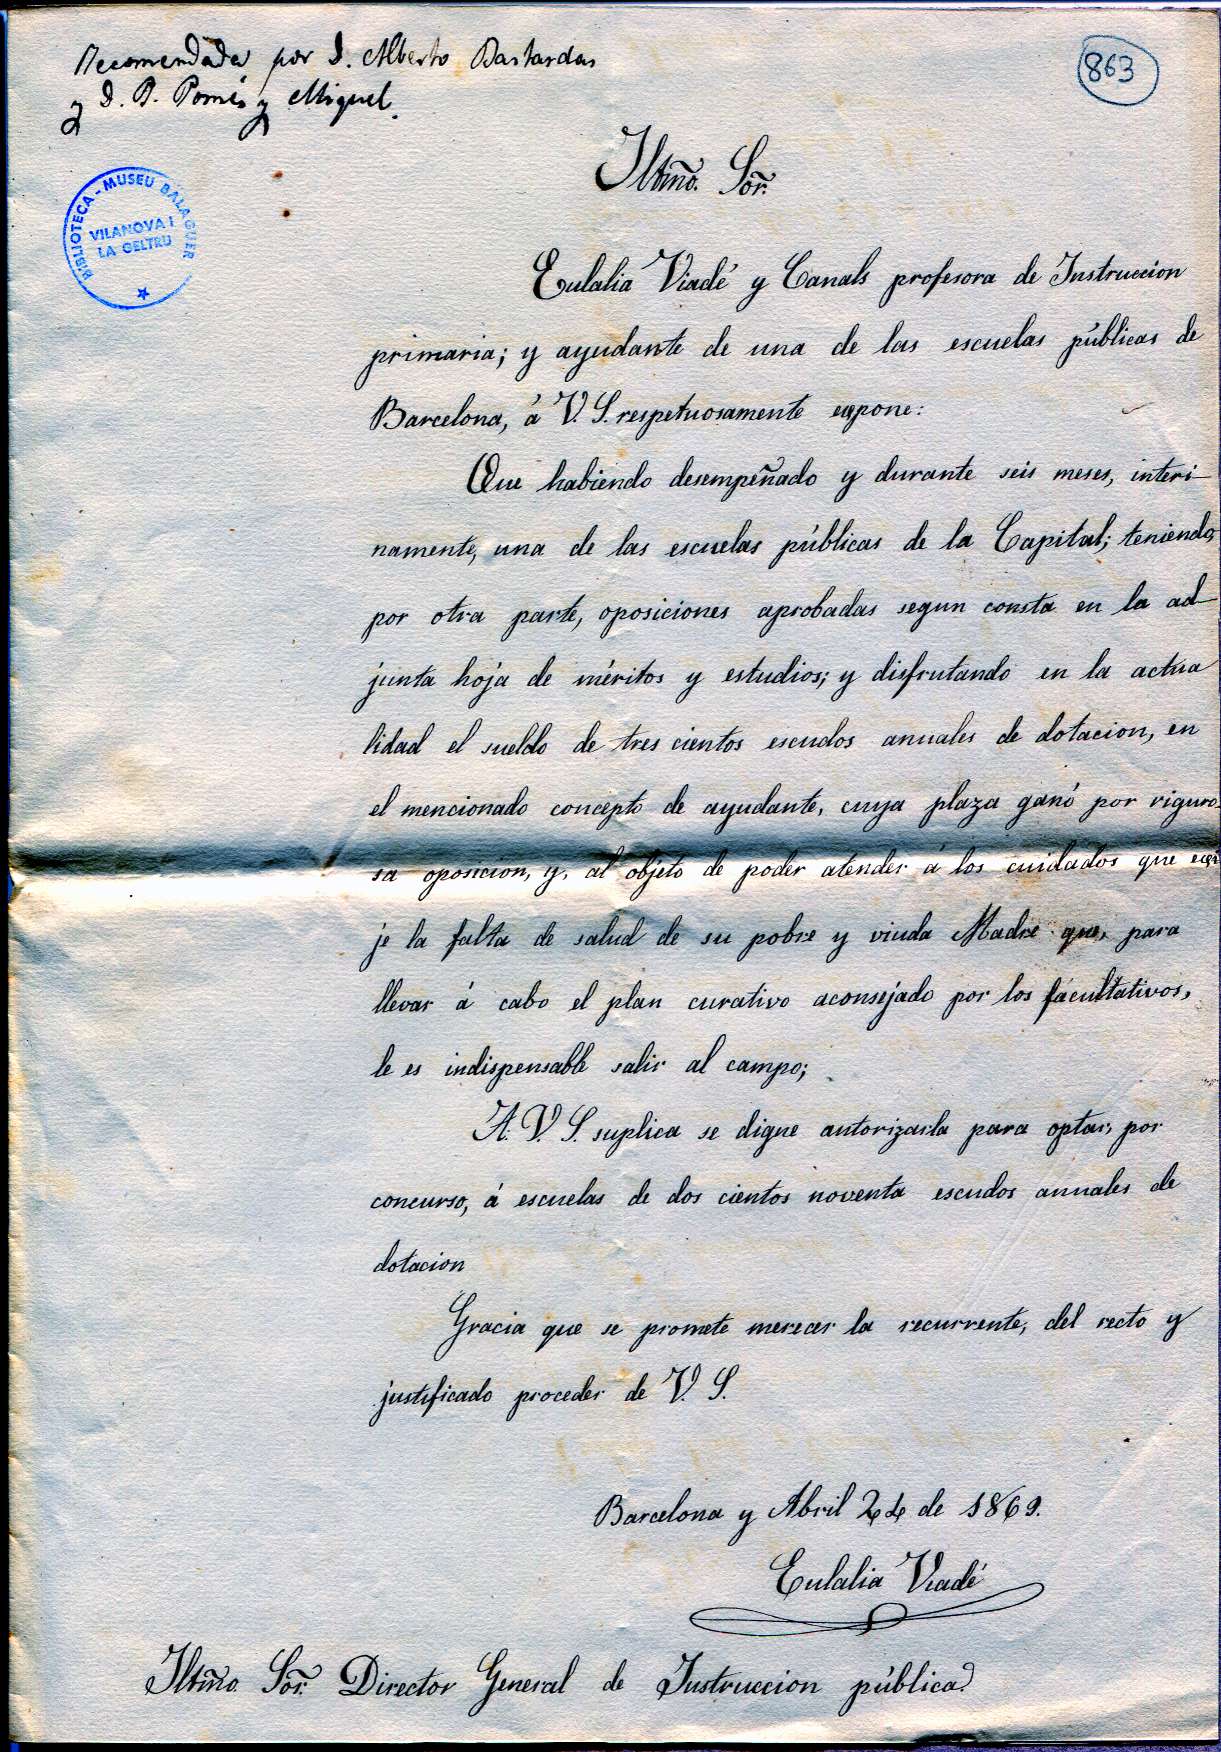 Recomendada por D. Alberto Bastardas
y D. P. Pomés y Miquel.
863
BIBLIOTECA - MUSEU BALAGUER
VILANOVA I
LA GELTRU
Iltmo. Sor.
Eulalia Viadé y Canals profesora de Instruccion
primaria; y ayudante de una de las escuelas públicas de
Barcelona, á V. S. respetuosamente expone:
Que habiendo desempeñado y durante seis meses, interi-
namente, una de las escuelas públicas de la Capital; teniendo,
por otra parte, oposiciones aprobadas segun consta en la ad-
junta hoja de méritos y estudios; y disfrutando en la actua
lidad el sueldo de tres cientos escudos anuales de dotacion, en
el mencionado concepto de ayudante, cuya plaza ganó por riguro-
sa oposicion, y, al objeto de poder atender á los cuidados que exi
je la falta de salud de su pobre y viuda Madre que, para
llevar á cabo el plan curativo aconsejado por los facultativos,
le es indispensable salir al campo;
A. V. S. suplica se digne autorizarla para optar, por
concurso, á escuelas de dos cientos noventa escudos anuales de
dotacion
Gracia que se promete merecer la recurrente, del recto y
justificado proceder de V. S.
Barcelona y Abril 24 de 1869.
Eulalia Viadé
Iltmo. Sor. Director General de Instruccion pública.